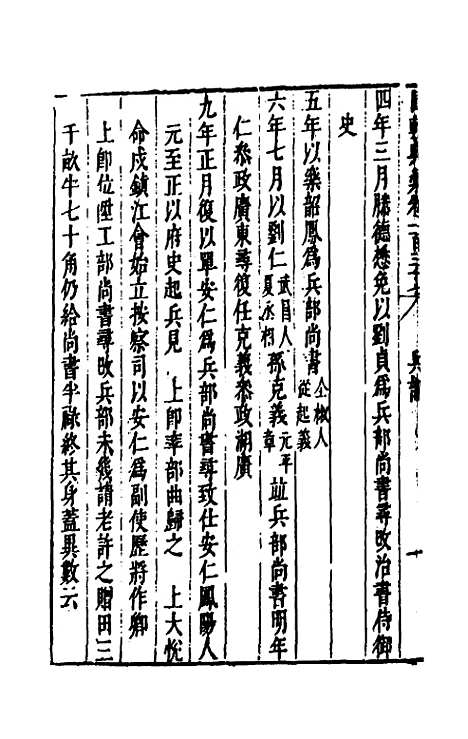 四年三月滕德懋免以劉貞爲兵部尚書尋改治書侍御
史
五年以樂韶鳳爲兵部尚書仝椒人從起義
六年七月以劉仁武昌人夏永相部克義元平章竝兵部尚書明年
仁叅政廣東尋復任克義叅政湖廣
九年正月復以單安仁爲兵部尚書尋致仕安仁鳳陽人
元至正以府史起兵見 上卽率部曲歸之 上大悅
命戍鎮江會始立按察司以安仁爲副使歷將作卿
上卽位陞工部尚書尋改兵部未幾請老許之贈田三
千畝牛七十角仍給尚書半祿終其身蓋異數云